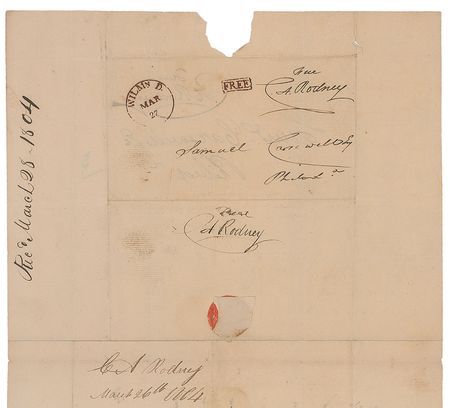 Rec'd March 28. 1804
WILM'N D.
MAR
27
FREE
Free
C A. Rodney
Samuel
Philad a
Free
C A Rodney
C. A Rodney
March 26th 1804